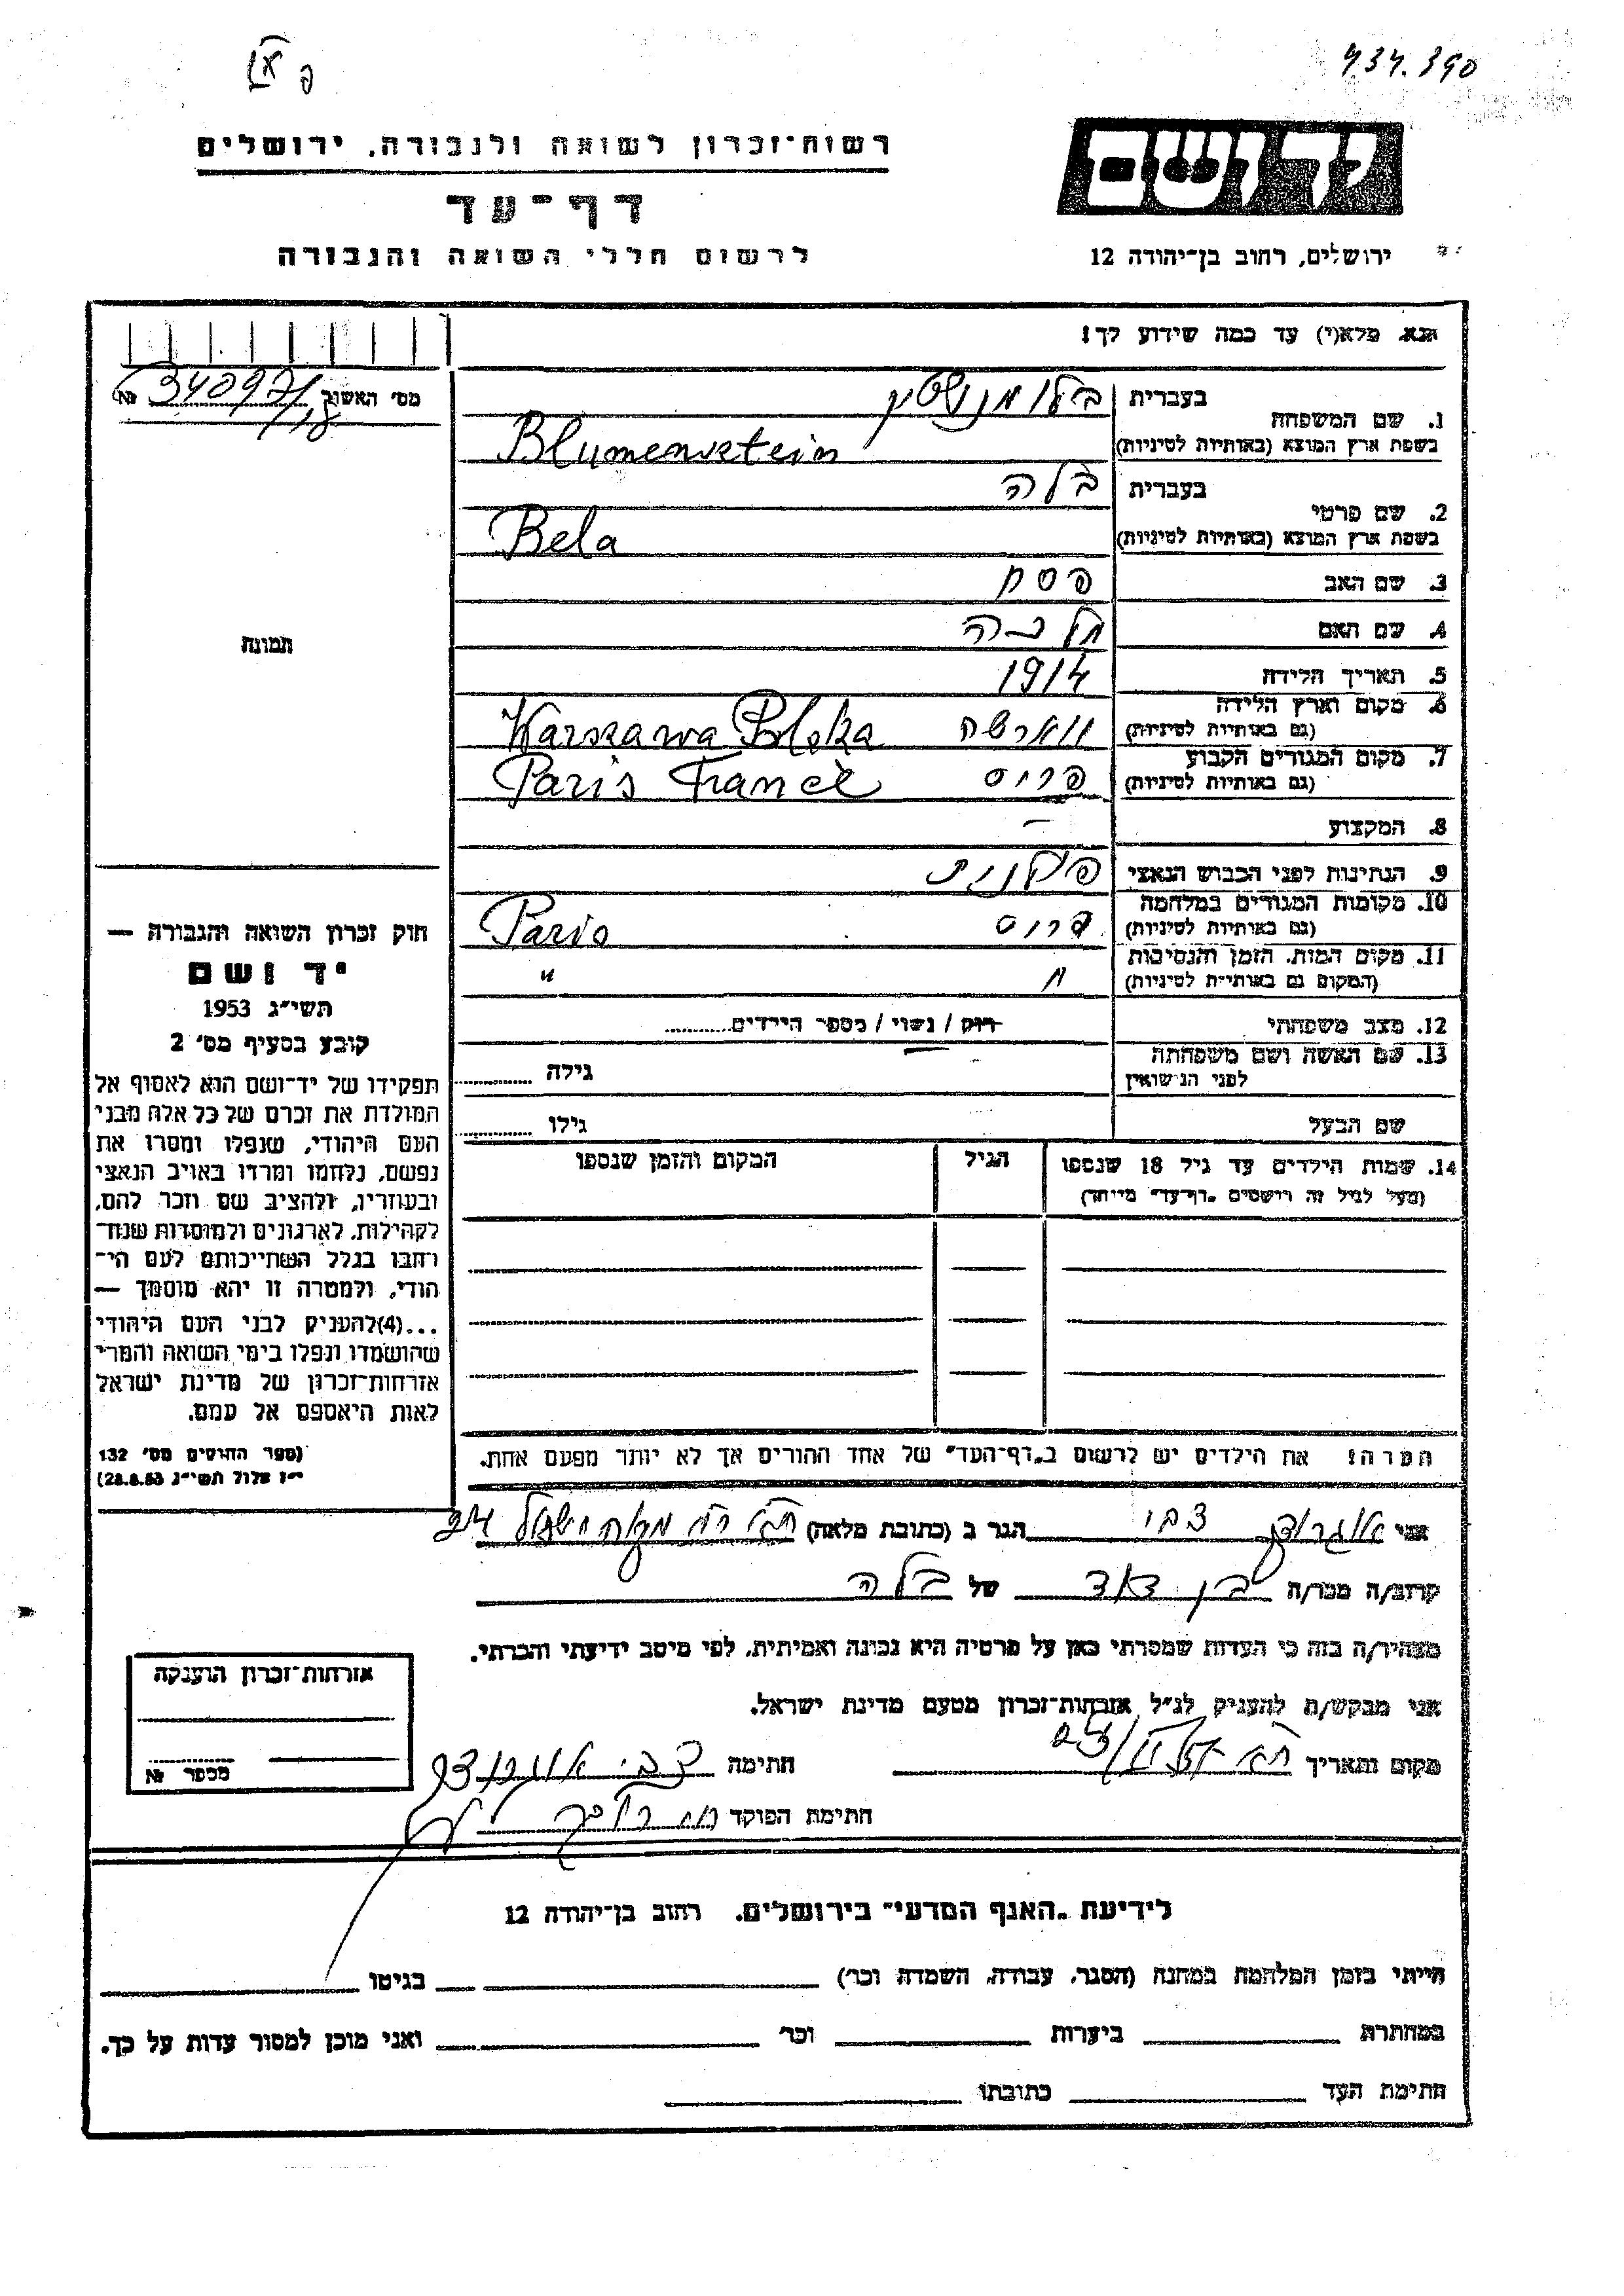 434.390
רשות־זכרון לשואה ולגבורה, ירושלים
יד ושם
דף־עד
לרשום חללי השואה והגבורה
ירושלים, רחוב בן־יהודה 12
נא מלא(י) עד כמה שידוע לך!
מס' האשור № 340971
1. שם המשפחה
בעברית בלומנשטין
בשפת ארץ המוצא (באותיות לטיניות) Blumensztein
2. שם פרטי
בעברית בלה
בשפת ארץ המוצא (באותיות לטיניות) Bela
3. שם האב פסח
4. שם האם מלכה
תמונה
5. תאריך הלידה 1914
6. מקום וארץ הלידה
(גם באותיות לטיניות) ווארשה Warszawa Polska
7. מקום המגורים הקבוע
(גם באותיות לטיניות) פריס Paris France
8. המקצוע —
9. הנתינות לפני הכבוש הנאצי פולנית
10. מקומות המגורים במלחמה
(גם באותיות לטיניות) פריס Paris
11. מקום המות, הזמן והנסיבות
(המקום גם באותיות לטיניות) " "
12. מצב משפחתי רוק / נשוי / מספר הילדים
13. שם האשה ושם משפחתה
לפני הנישואין גילה
שם הבעל גילו
14. שמות הילדים עד גיל 18 שנספו הגיל המקום והזמן שנספו
(מעל לגיל זה רושמים "דף־עד" מיוחד)
חוק זכרון השואה והגבורה —
יד ושם
תשי"ג 1953
קובע בסעיף מס' 2
תפקידו של יד־ושם הוא לאסוף אל
המולדת את זכרם של כל אלה מבני
העם היהודי, שנפלו ומסרו את
נפשם, נלחמו ומרדו באויב הנאצי
ובעוזריו, ולהציב שם וזכר להם,
לקהילות, לארגונים ולמוסדות שנח־
רבו בגלל השתייכותם לעם הי־
הודי, ולמטרה זו יהא מוסמך —
...(4)להעניק לבני העם היהודי
שהושמדו ונפלו בימי השואה והמרי
אזרחות־זכרון של מדינת ישראל
לאות היאספם אל עמם.
(ספר החוקים מס' 132
י"ז אלול תשי"ג 28.8.53)
הערה! את הילדים יש לרשום ב"דף־העד" של אחד ההורים אך לא יותר מפעם אחת.
אני צבי הגר ב (כתובת מלאה) 24
קרוב/ה מכר/ה בן דוד של בלה
מצהיר/ה בזה כי העדות שמסרתי כאן על פרטיה היא נכונה ואמיתית, לפי מיטב ידיעתי והכרתי.
אני מבקש/ת להעניק לנ"ל אזרחות־זכרון מטעם מדינת ישראל.
מקום ותאריך חתימה צבי
חתימת הפוקד
אזרחות־זכרון הוענקה
מספר №
לידיעת "האגף המדעי" בירושלים, רחוב בן־יהודה 12
הייתי בזמן המלחמה במחנה (הסגר, עבודה, השמדה וכו') בגיטו
במחתרת ביערות וכו' ואני מוכן למסור עדות על כך.
חתימת העד כתובתו